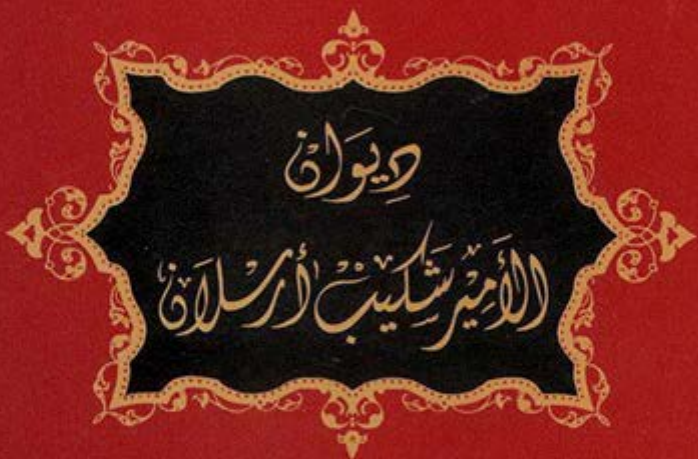 دِيوَان
الأَمِير شَكِيبْ أَرسْلَان